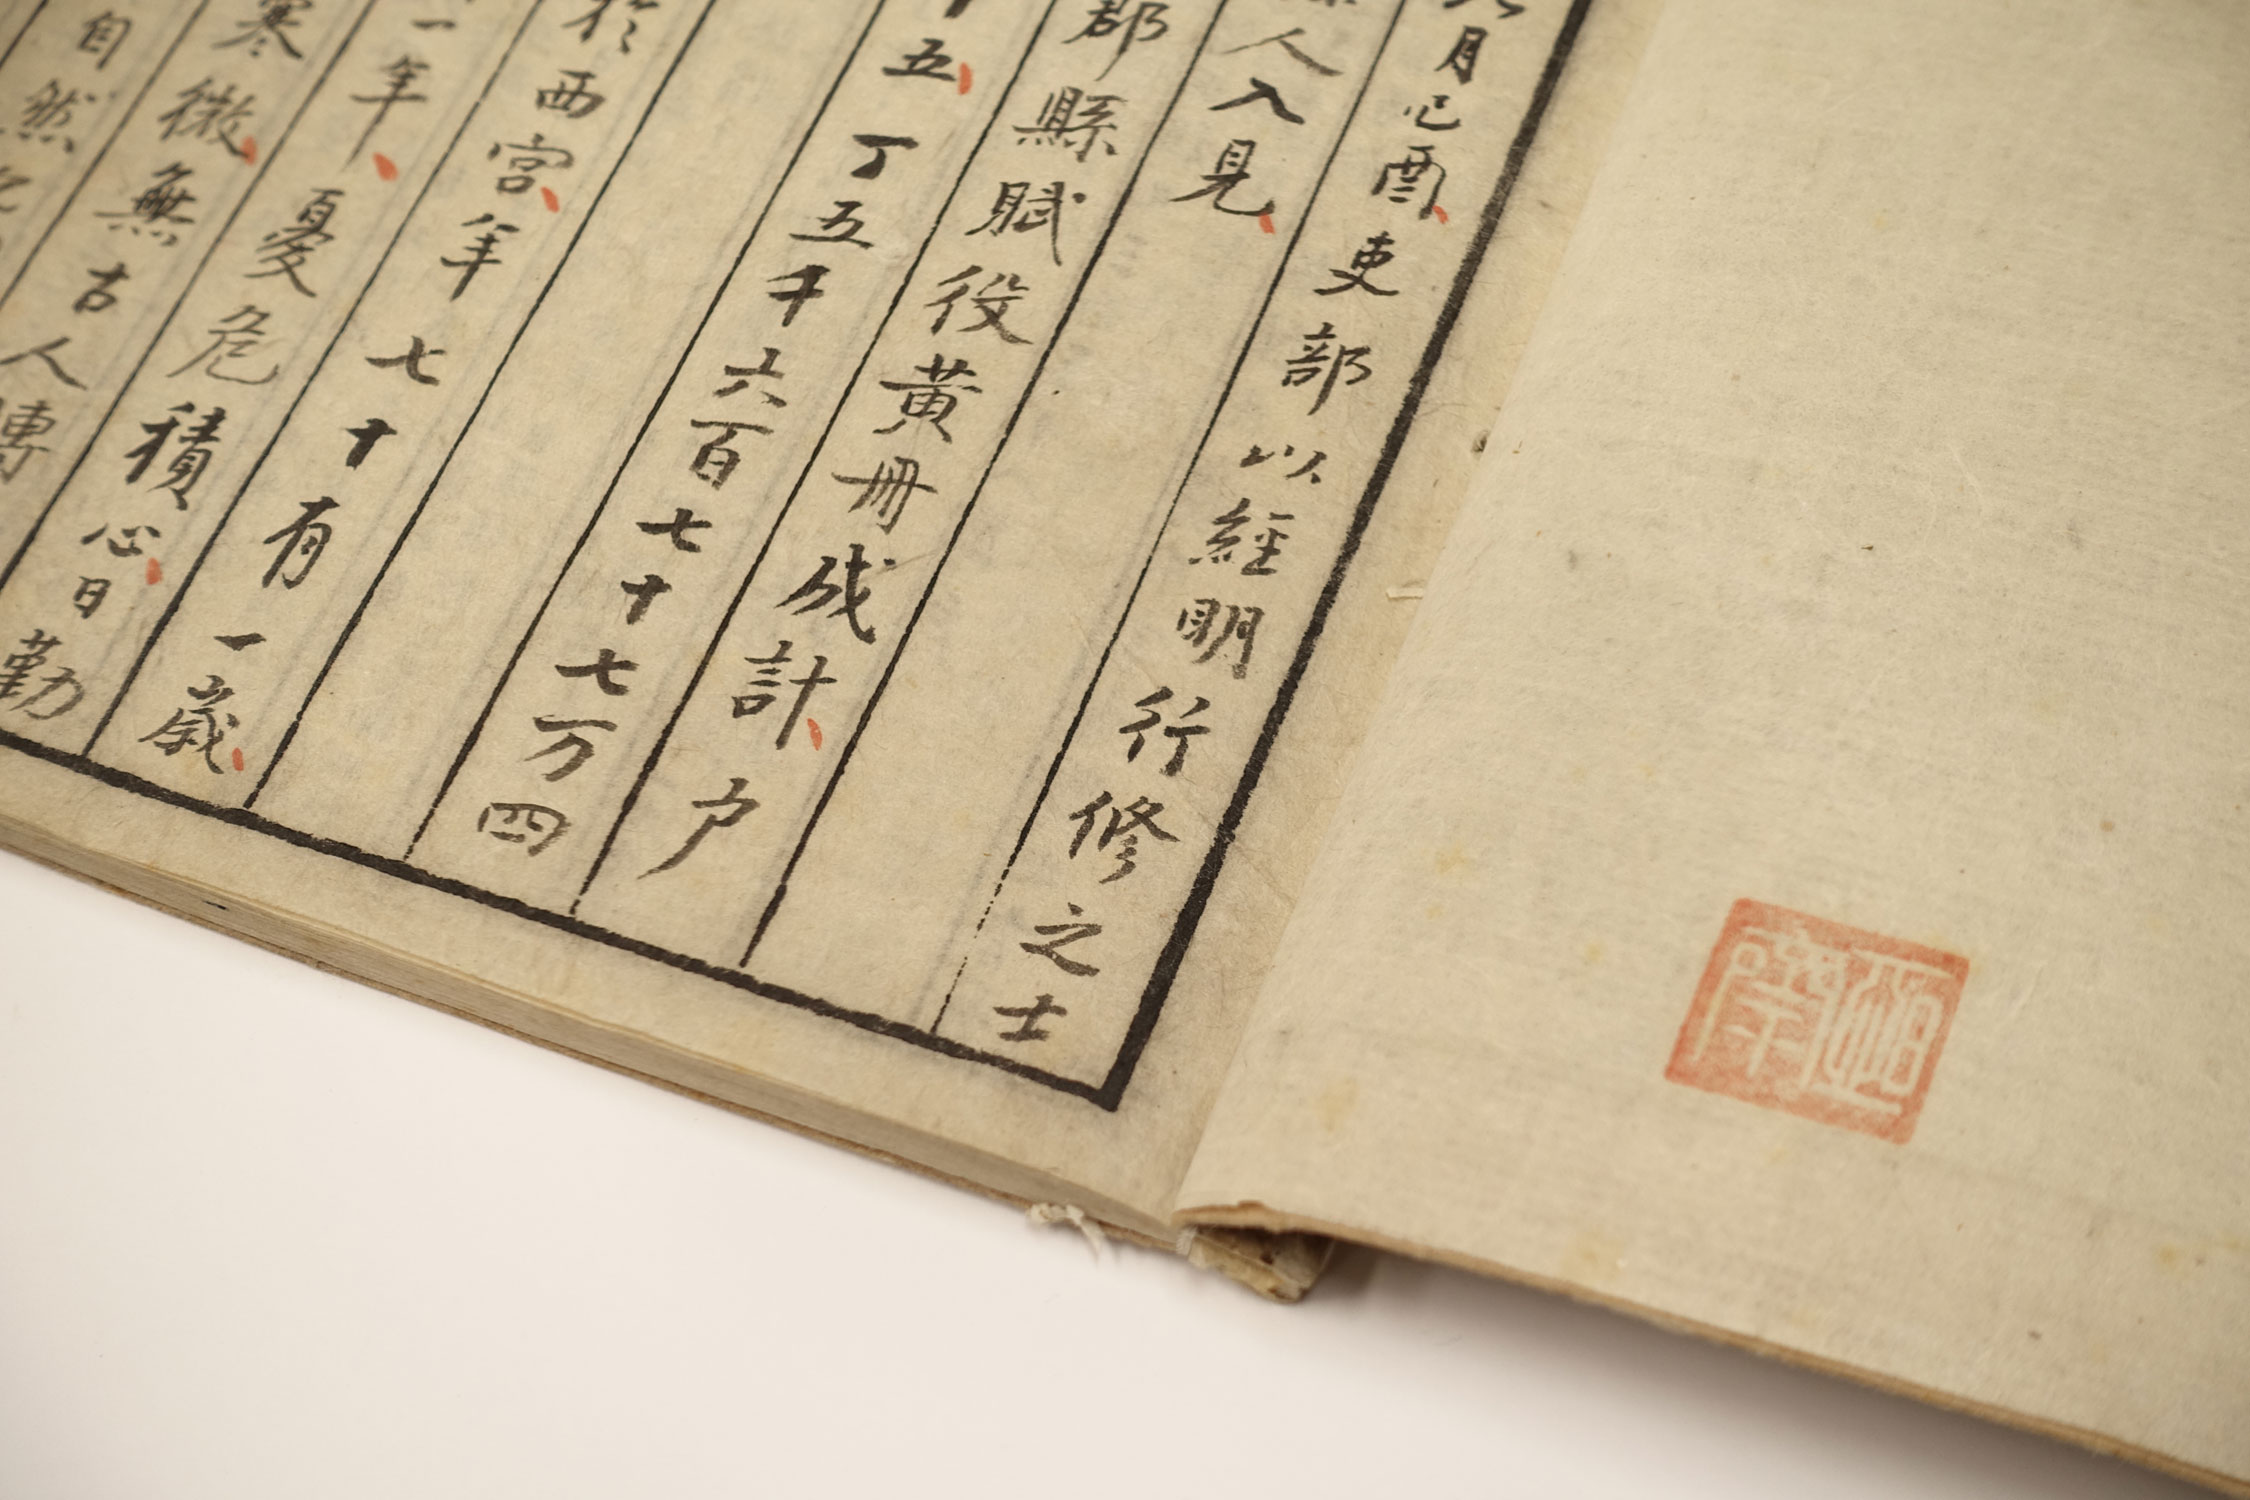 月己酉、吏部以經明行修之士
人入見、
郡縣賦役黃冊成計、户
十五、丁五千六百七十七万四
於西宮、年七十有一歲、
一年、憂危積心、日勤
寒微、無古人博
自然